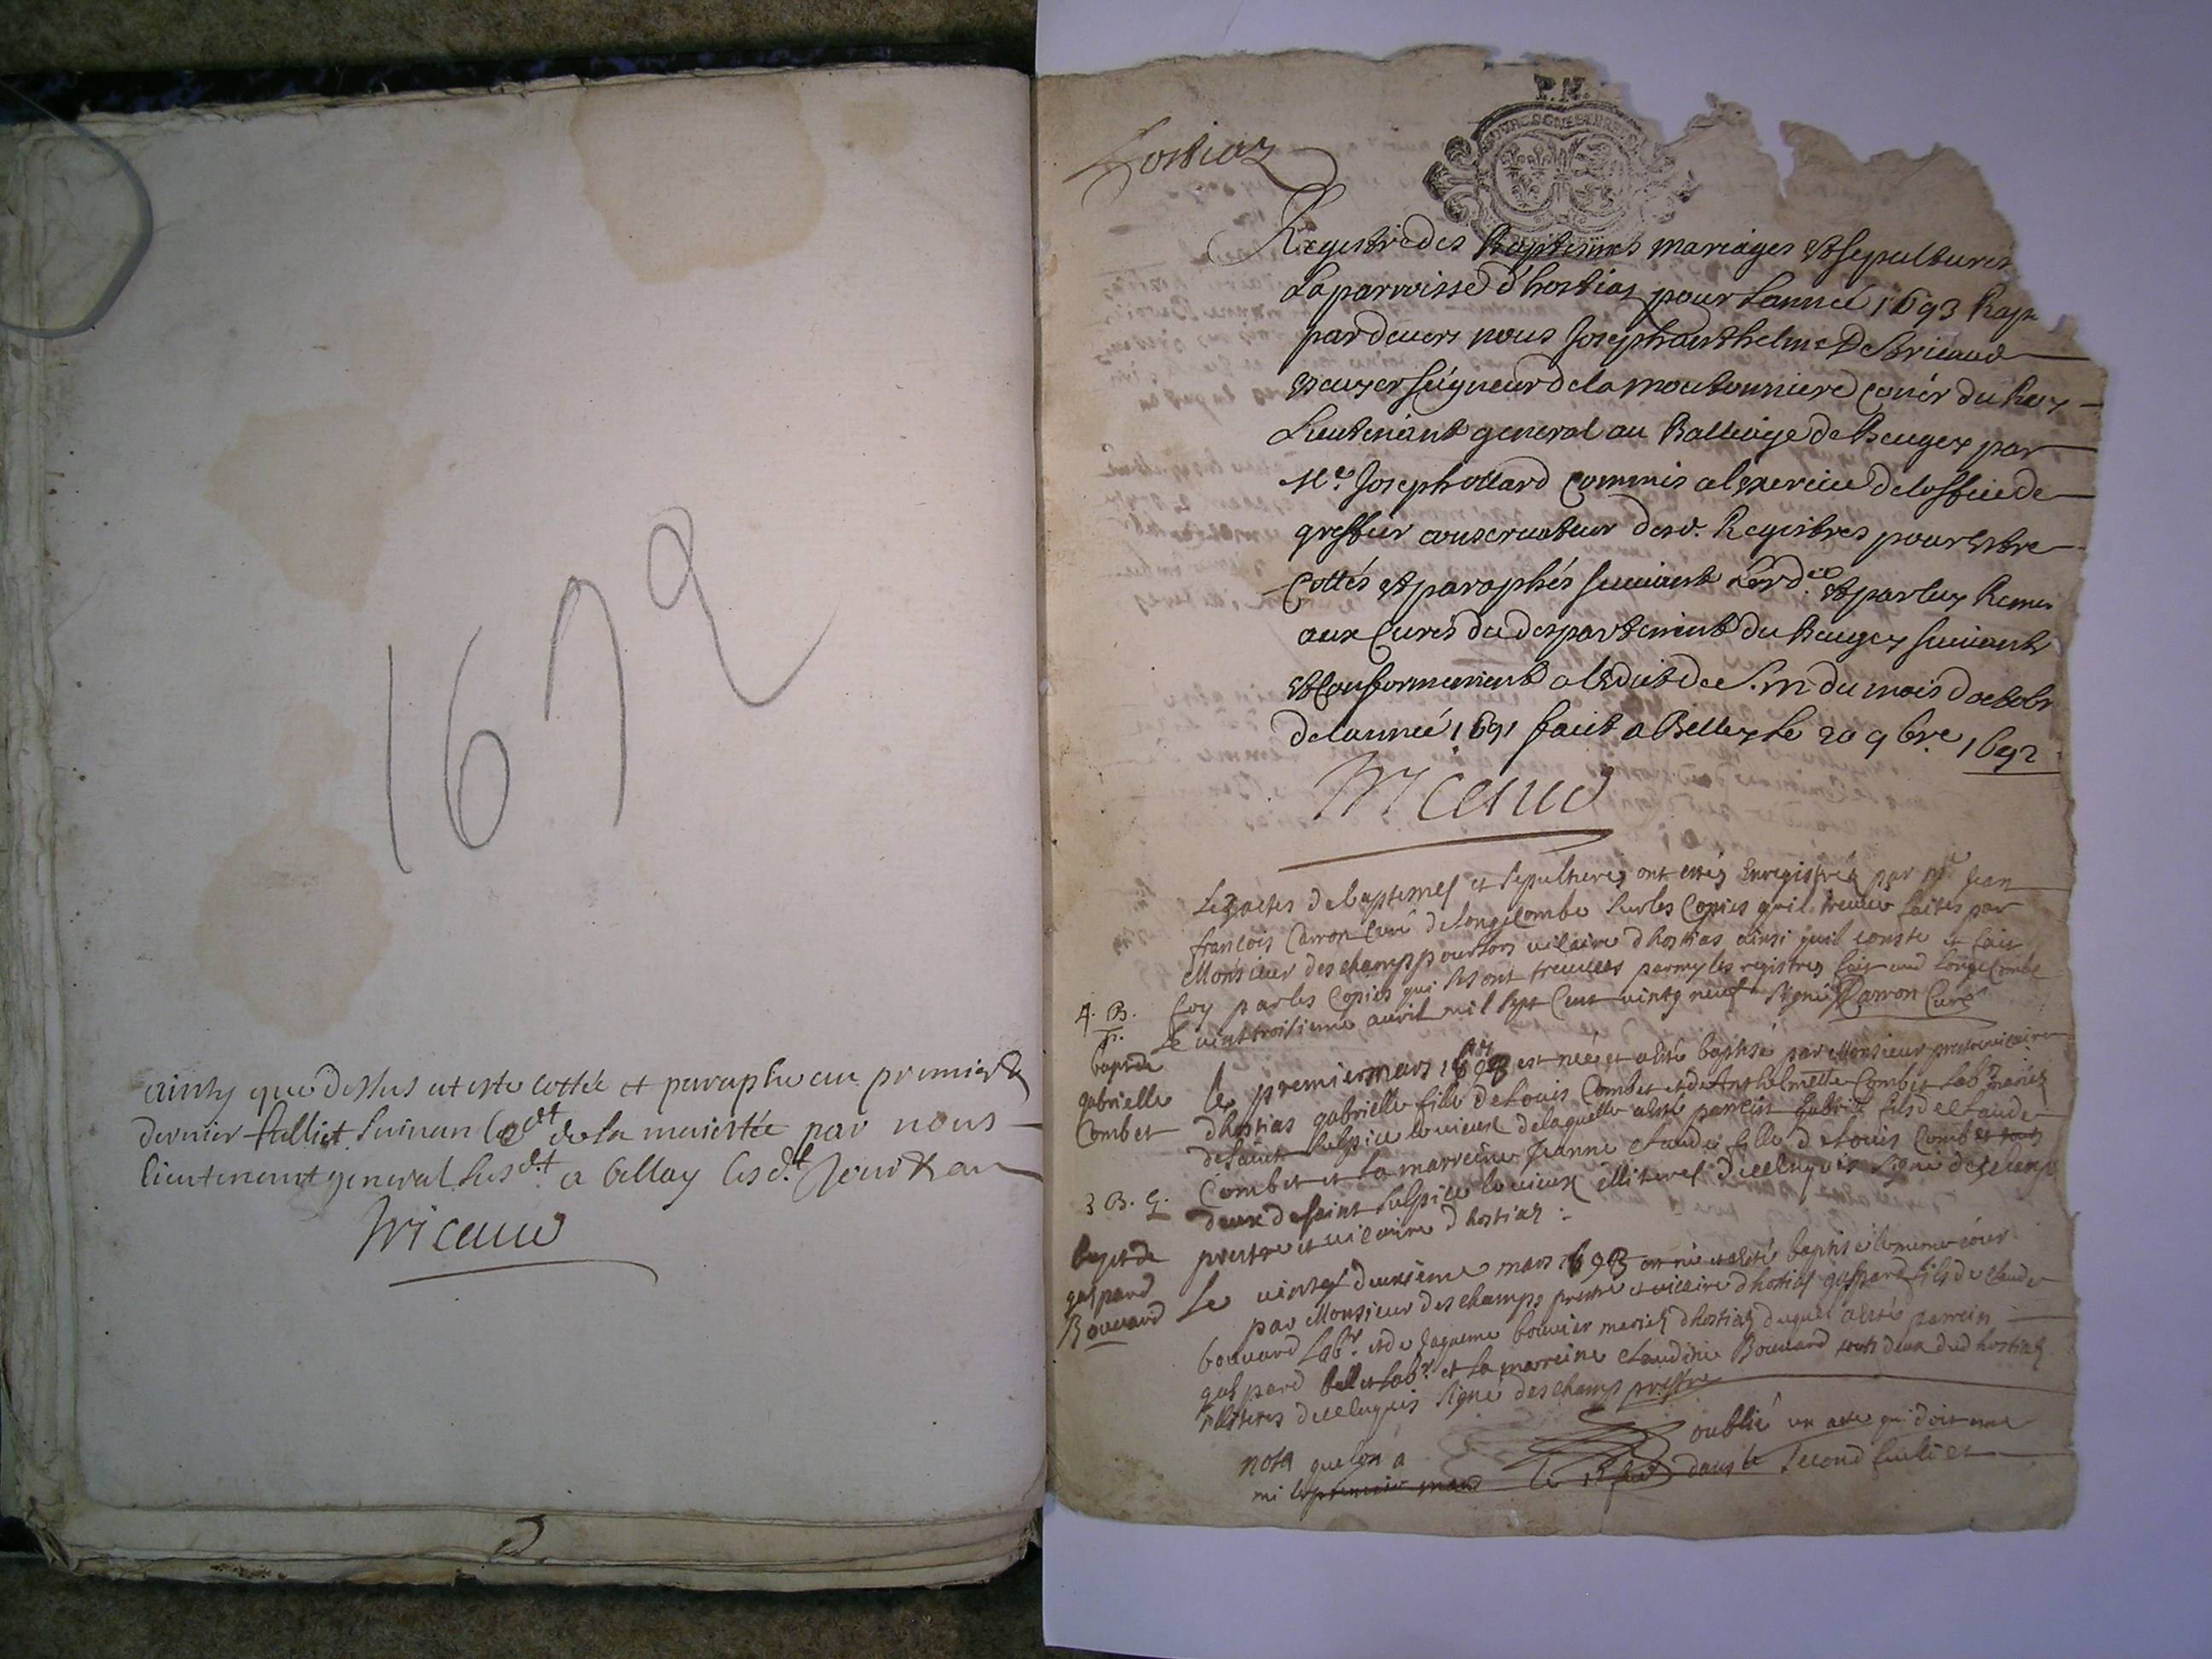 1692
ainsy que dessus at este cottée et paraphe au premier &
dernier fulliet suivan l'edt de la maiestée par nous
lieutenant general susdt a Bellay lesdt jour & an
Tricaud
P. N.
Hostiaz
Registre des Baptesmes mariages et sepultures
La parroisse d'hostiaz pour Lannee 1693 Rap
pardevers nous Joseph anthelme De Tricaud
Escuyer seigneur de la moutonniere Coner du Roy
Lieutenant general au Balliage de Beugey par
Me. Joseph ollard Commis a lexercice de loffice de
greffier conservateur desd. Registres pour Estre
Cottés et paraphés suivant Lordce et par luy Remis
aux Curés du despartement du Beugey suivant
et Conformement a ledict de S. M du mois d octobr
de lannée 1691 faict a Belley Le 20 9bre 1692
Tricaud
Les actes de baptemes et sepultures ont estés Enregistrés par Mre Jean
francois Carron Curé de Longecombe sur les Copies quil a treuvé faites par
Monsieur deschamp pour lors vicaire d hostias ainsi quil conste et fait
foy par les Copies qui se sont treuvées parmy les registres fait aud Longecombe
Le vint troisieme avril mil sept Cent vintg neuf signé Carron Curé
4. B.
F.
bapt de
gabrielle
Combet
le premier mars 1693 est née et a esté baptisé par Monsieur prestre vicaire
dhostias gabrielle fille de Louis Combet et de Anthelmette Combet Labr mariés
de saint sulpice le vieux de laquelle a esté parrein gabriel fils de Claude
Combet et La marreine Jeanne Claude fille de Louis Combet touts
deux de saint sulpice le vieux illiteres de ce enquis signé deschamp
prestre et vicaire d hostias :-
3 B. G.
bapt de
gaspard
Bouvard
Le vintg deuxieme mars 1693 est né et a esté baptisé le meme jour
par Monsieur deschamps prestre et vicaire dhostias gaspard fils de Claude
bouvard Labr. et de Jaqueme bouvier mariés dhostias duquel a esté parrein
gaspard Labr. et La marreine Claudine Bouvard touts deux dud hostias
illiteres de ce enquis signé deschamp prestre
nota que lon a oublié un acte qui doit etre
mi le premier mars dans le second feuliet